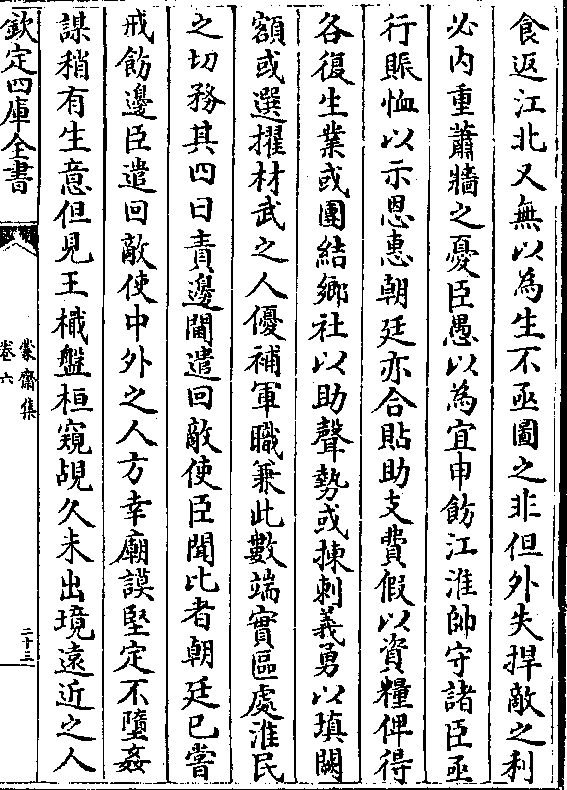 食返江北又無以為生不亟圖之非但外失捍敵之利
必内重蕭牆之憂臣愚以為宜申飭江淮帥守諸臣亟
行賑恤以示恩惠朝廷亦合貼助支費假以資糧俾得
各復生業或團結鄉社以助聲勢或揀刺義勇以填闕
額或選擢材武之人優補軍職兼此數端實區處淮民
之切務其四曰責邊閫遣回敵使臣聞比者朝廷已嘗
戒飭邊臣遣回敵使中外之人方幸廟謨堅定不墮姦
謀稍有生意但見王檝盤桓窺覘久未出境遠近之人
欽定四庫全書
蒙齋集
卷六
二十三